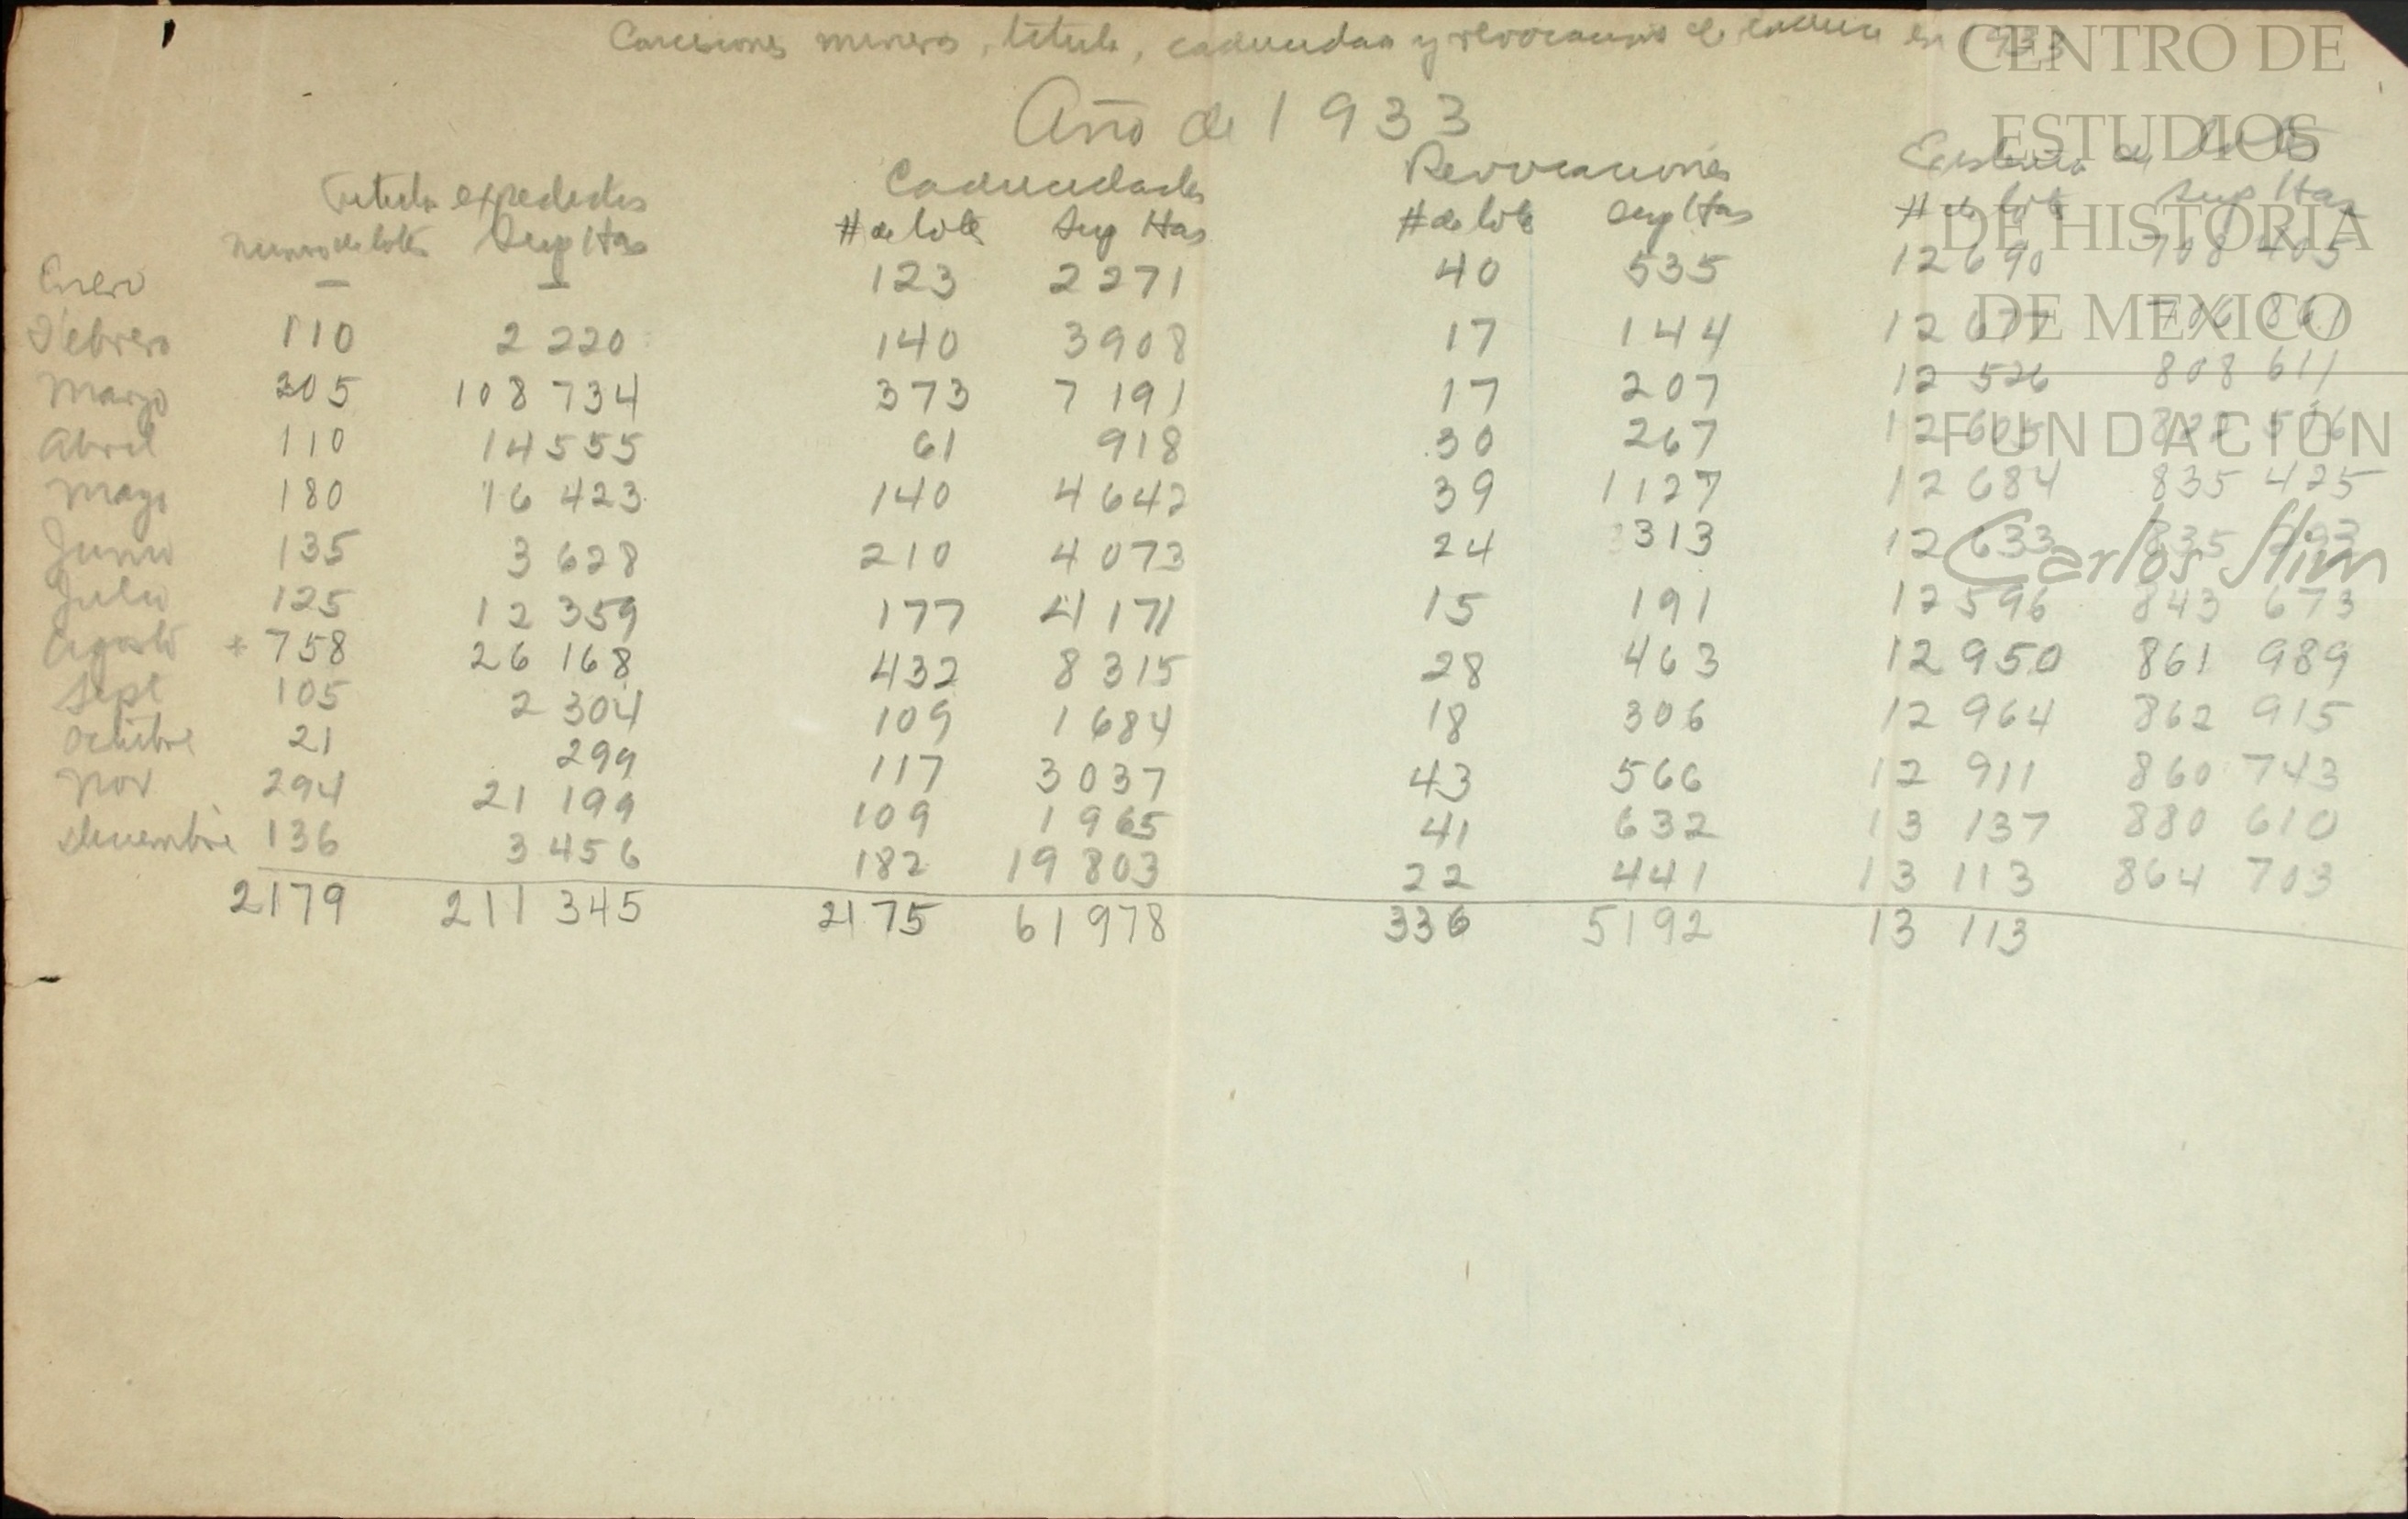 Concesiones mineras, titulo, caducidad y revocacions de caduci en 1933
Año de 1933
Titulo expedidos Caducidades Revocaciones Existencia de lotes
numero de lotes Sup Has # de lote Sup Has # de lote Sup Has # de lote Sup Has
Enero — — 123 2271 40 535 12 690 708 405
Febrero 110 2 220 140 3908 17 144 12 677 706 861
Marzo 205 108 734 373 7 191 17 207 12 526 808 611
Abril 110 14555 61 918 30 267 12 605 822 516
Mayo 180 16 423 140 4642 39 1127 12 684 835 425
Junio 135 3 628 210 4 073 24 313 12 633 835 293
Julio 125 12 359 177 4 171 15 191 12 596 843 673
Agosto + 758 26 168 432 8 315 28 463 12 950 861 989
Sept 105 2 304 109 1 684 18 306 12 964 862 915
Octubre 21 299 117 3 037 43 566 12 911 860 743
Nov 294 21 199 109 1 965 41 632 13 137 880 610
Diciembre 136 3 456 182 19 803 22 441 13 113 864 703
2179 211 345 2175 61978 336 5192 13 113
CENTRO DE
ESTUDIOS
DE HISTORIA
DE MEXICO
FUNDACIÓN
Carlos Slim